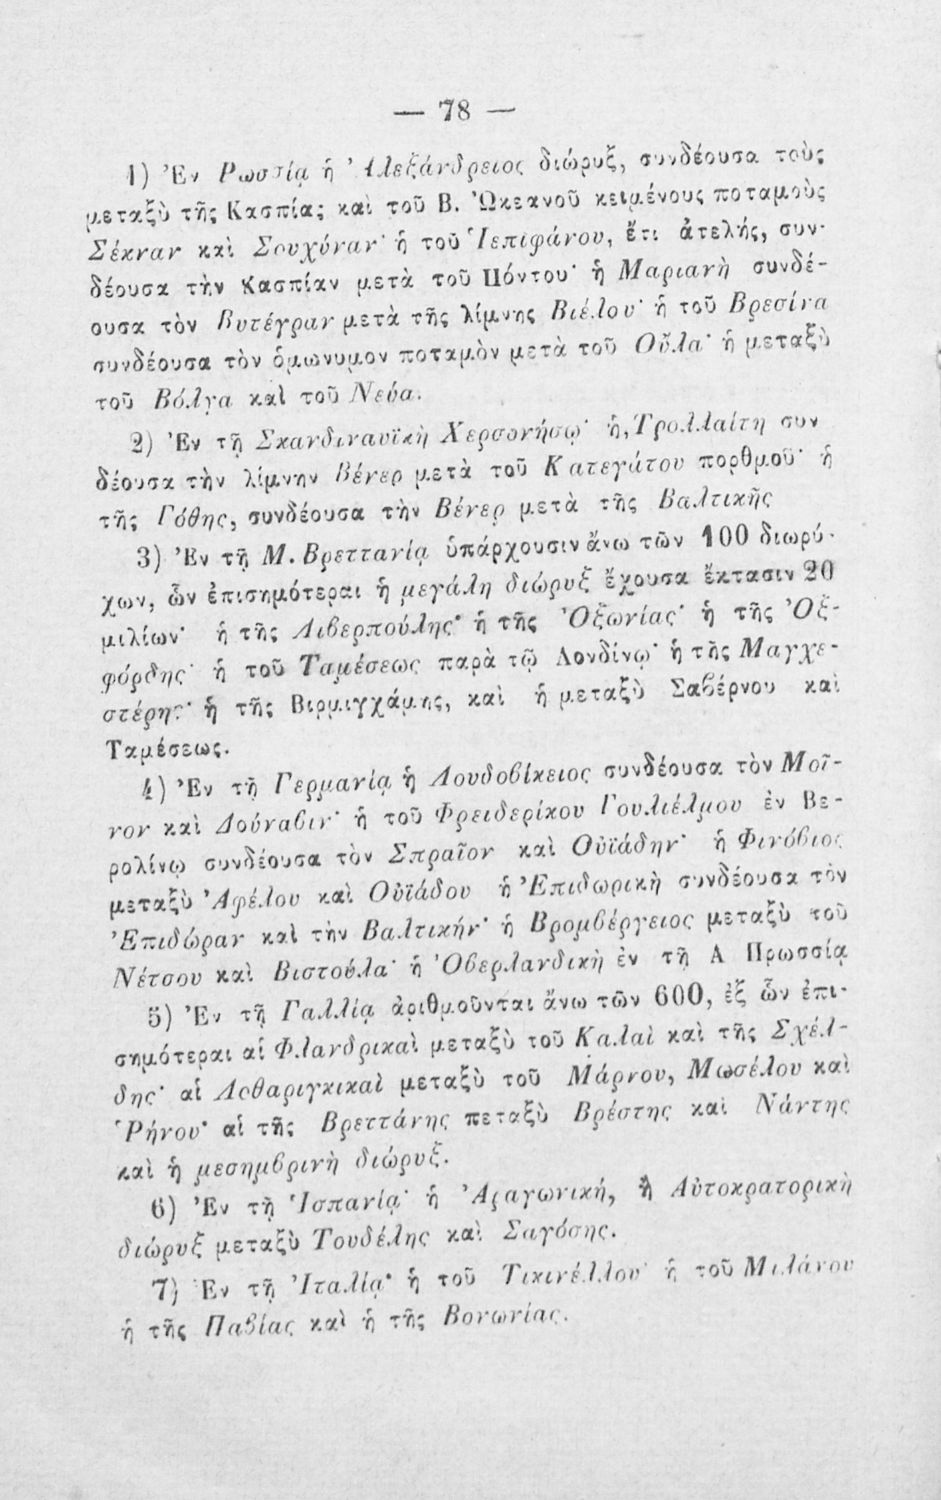 — 78 —
1) Ἐν Ρωσσίᾳ ἡ Ἀλεξάνδρειος διώρυξ, συνδέουσα τοὺς
μεταξὺ τῆς Κασπίας καὶ τοῦ Β. Ὠκεανοῦ κειμένους ποταμοὺς
Σέκναν καὶ Σουχύναν· ἡ τοῦ Ἱεπιφάνου, ἔτι ἀτελής, συν-
δέουσα τὴν Κασπίαν μετὰ τοῦ Πόντου· ἡ Μαριανὴ συνδέ-
ουσα τὸν Βυτέγραν μετὰ τῆς λίμνης Βιέλου· ἡ τοῦ Βρεσίνα
συνδέουσα τὸν ὁμωνυμον ποταμὸν μετὰ τοῦ Οὔλα· ἡ μεταξὺ
τοῦ Βόλγα καὶ τοῦ Νεύα.
2) Ἐν τῇ Σκανδιναυϊκὴ Χερσονήσῳ· ἡ, Τρολλαίτη συν
δέουσα τὴν λίμνην Βένερ μετὰ τοῦ Κατεγάτου πορθμοῦ· ἡ
τῆς Γόθης, συνδέουσα τὴν Βένερ μετὰ τῆς Βαλτικῆς
3) Ἐν τῇ Μ. Βρεττανίᾳ ὑπάρχουσιν ἄνω τῶν 100 διωρύ-
χων, ὧν ἐπισημότεραι ἡ μεγάλη διώρυξ ἔχουσα ἔκτασιν 20
μιλίων· ἡ τῆς Λιβερπούλης· ἡ τῆς Ὀξωνίας· ἡ τῆς Ὀξ-
φόρδης· ἡ τοῦ Ταμέσεως παρὰ τῷ Λονδίνῳ· ἡ τῆς Μαγχε-
στέρης· ἡ τῆς Βιρμιγχάμης, καὶ ἡ μεταξὺ Σαβέρνου καὶ
Ταμέσεως.
4) Ἐν τῇ Γερμανίᾳ ἡ Λουδοβίκειος συνδέουσα τὸν Μοῖ-
νον καὶ Δούναβιν· ἡ τοῦ Φρειδερίκου Γουλιέλμου ἐν Βε-
ρολίνῳ συνδέουσα τὸν Σπραῖον καὶ Οὐϊάδην· ἡ Φινόβιος
μεταξὺ Ἀφέλου καὶ Οὐϊάδου ἡ Ἐπιδωρικὴ συνδέουσα τὸν
Ἐπιδώραν καὶ τὴν Βαλτικήν· ἡ Βρομβέργειος μεταξὺ τοῦ
Νέτσου καὶ Βιστούλα· ἡ Ὀβερλανδικὴ ἐν τῇ Α Πρωσσίᾳ
5) Ἐν τῇ Γαλλίᾳ ἀριθμοῦνται ἄνω τῶν 600, ἐξ ὧν ἐπι-
σημότεραι αἱ Φλανδρικαὶ μεταξὺ τοῦ Καλαὶ καὶ τῆς Σχέλ-
δης· αἱ Λοθαριγκικαὶ μεταξὺ τοῦ Μάρνου, Μωσέλου καὶ
Ῥήνου· αἱ τῆς Βρεττάνης πεταξὺ Βρέστης καὶ Νάντης
καὶ ἡ μεσημβρινὴ διώρυξ.
6) Ἐν τῇ Ἱσπανίᾳ· ἡ Ἀραγωνική, ἢ Αὐτοκρατορικὴ
διώρυξ μεταξὺ Τουδέλης καὶ Σαγόσης.
7) Ἐν τῇ Ἰταλίᾳ· ἡ τοῦ Τικινέλλου· ἡ τοῦ Μιλάνου
ἡ τῆς Παβίας καὶ ἡ τῆς Βονωνίας.